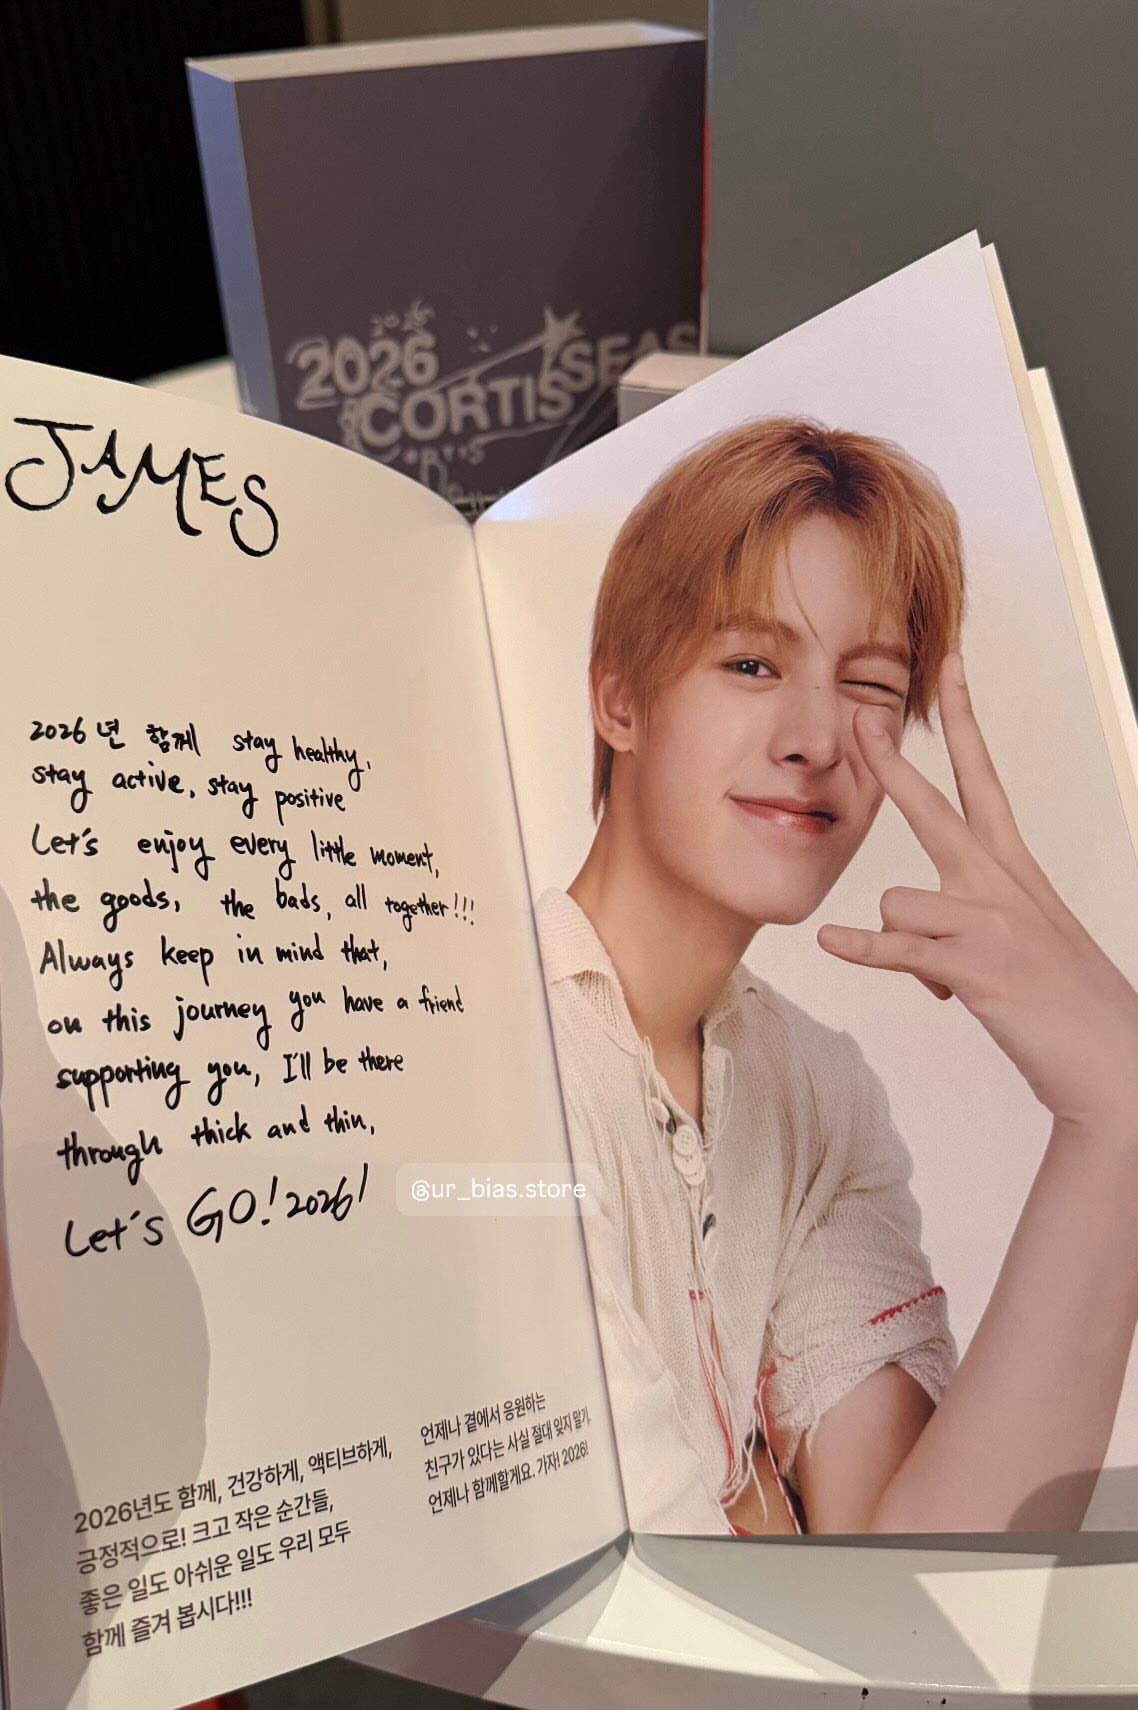 2026
CORTIS
SEAS
JAMES
2026년 함께 stay healthy,
stay active, stay positive
Let's enjoy every little moment,
the goods, the bads, all together!!!
Always keep in mind that,
on this journey you have a friend
supporting you, I'll be there
through thick and thin,
Let's GO! 2026!
@ur_bias.store
2026년도 함께, 건강하게, 액티브하게,
긍정적으로! 크고 작은 순간들,
좋은 일도 아쉬운 일도 우리 모두
함께 즐겨 봅시다!!!
언제나 곁에서 응원하는
친구가 있다는 사실 절대 잊지 말기.
언제나 함께할게요. 가자! 2026!